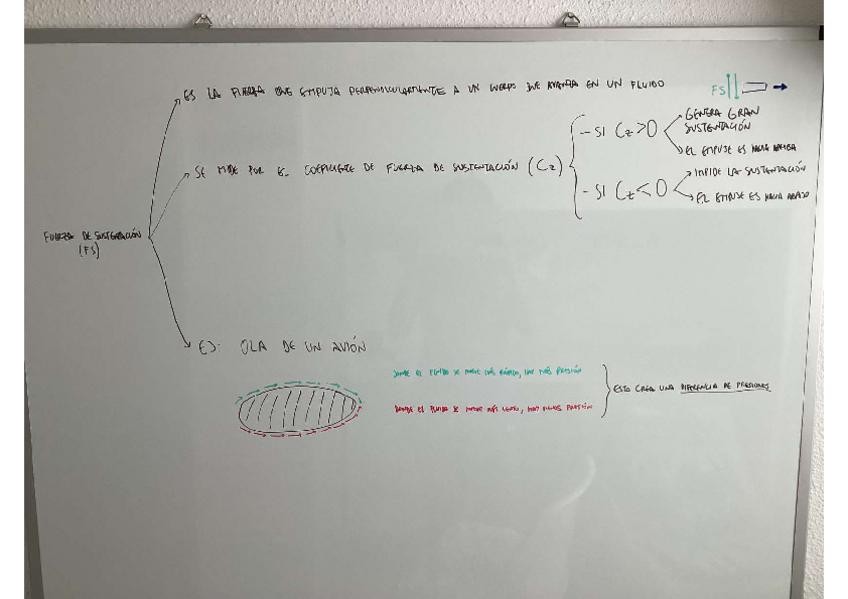 ES LA FUERZA QUE EMPUJA PERPENDICULARMENTE A UN CUERPO QUE AVANZA EN UN FLUIDO
FS
SE MIDE POR EL COEFICIENTE DE FUERZA DE SUSTENTACIÓN (Cz)
- SI Cz > 0
GENERA GRAN
SUSTENTACIÓN
EL EMPUJE ES HACIA ARRIBA
- SI Cz < 0
IMPIDE LA SUSTENTACIÓN
EL EMPUJE ES HACIA ABAJO
FUERZA DE SUSTENTACIÓN
(FS)
EJ: OLA DE UN AVIÓN
DONDE EL FLUIDO SE MUEVE MÁS RÁPIDO, HAY MÁS PRESIÓN
DONDE EL FLUIDO SE MUEVE MÁS LENTO, HAY MENOS PRESIÓN
ESTO CREA UNA DIFERENCIA DE PRESIONES